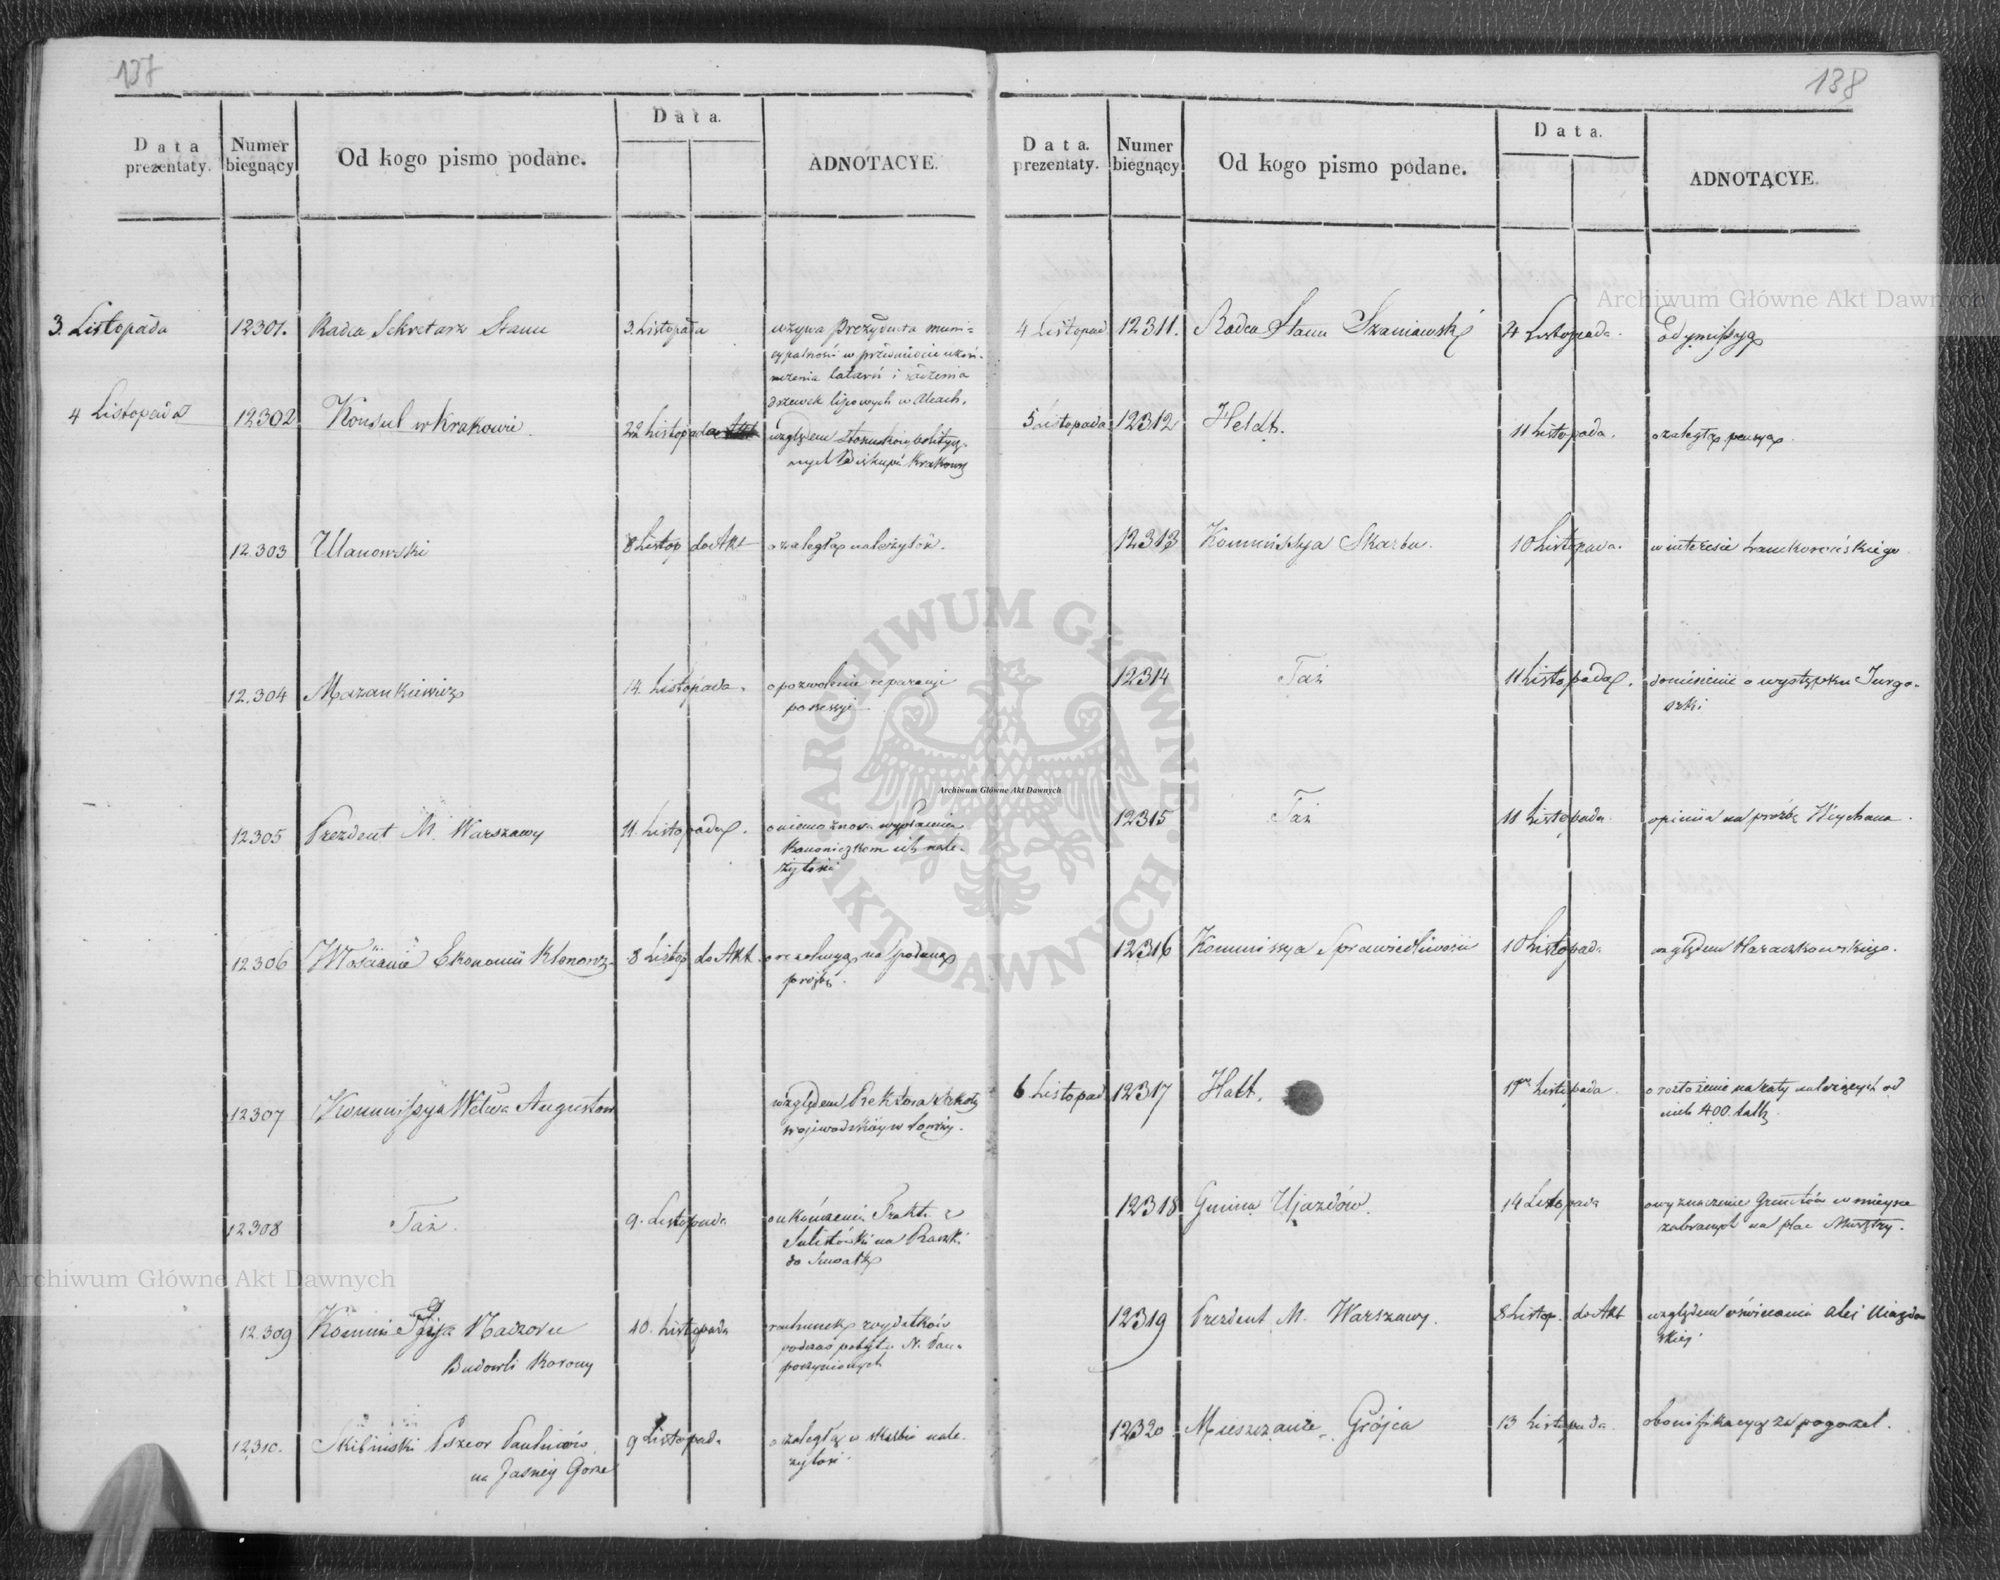 137
Data prezentaty.
Numer biegnący
Od kogo pismo podane.
Data.
ADNOTACYE.
3. Listopada 12301. Radca Sekretarz Stanu 3. Listopada wzywa Prezydenta muni-
cypalności w przedmiocie ukoń-
czenia latarń i sadzenia
drzewek lipowych w Aleach.
4 Listopada 12302 Konsul w Krakowie 22 Listopada względem stosunków politycz-
nych Biskupa Krakows
12.303 Ulanowski 8 Listop do Akt o zaległą należytość.
12.304 Mazankiewicz 14. Listopada. o pozwolenie reparacyi
possessyi
12305 Prezdent M. Warszawy 11. Listopada. o niemożności wypłacenia
Kanoniczkom ich nale-
żytości
12306 Włościanie Ekonomii Klonowz. 8 Listop do Akt. o rezolucyą na podaną
prośbę.
12307 Kommissya Wdwa Augustow względem Rektora szkoły
wojewodzkiey w Łomży.
12308 Taż. 9. Listopada o ukończeniu Trakt. z
na Raczki
do Suwałk
12.309 Kommissyja Nadzoru 10. Listopada rachunek wydatków
Budowli Korony podczas pobytu N. Pana
poczynionych
12310. Skibiński Przeor Paulinów 9 Listopada o zaległą w skarbie nale-
na Jasney Gorze żytość.
138
Data. prezentaty.
Numer biegnący
Od kogo pismo podane.
Data.
ADNOTACYE.
4 Listopad 12311. Radca Stanu Szaniawski 4 Listopada. O dymissyą
5 Listopada 12312 Heldt. 11 Listopada. o zaległą pensyą.
12313 Kommissya Skarbu. 10 Listopada. w interesie
12314 Taż 11 Listopada. doniesienie o występku Jurgo-
szki
12315 Taż 11 Listopada opinia na prośbę Weychana.
12316 Kommissya Sprawiedliwości 10 Listopad. względem Haraczkowskiego.
6 Listopad 12317 Hatt. Listopada. o rozłożenie na raty należących od
nieb 400. talb
12318 Gmina Ujazdów. 14 Listopada o wyznaczenie Gruntów w mieysce
zabranych na plac Musztry.
12319 Prezdent M. Warszawy. 8 Listop. do Akt względem oświecenia Alei Uiazdow
skiej
12320 Mieszczanie Grójca 13 Listopada. o bonifikacyą za pogorzel.
Archiwum Główne Akt Dawnych
ARCHIWUM GŁÓWNE AKT DAWNYCH
Archiwum Główne Akt Dawnych
Archiwum Główne Akt Dawnych